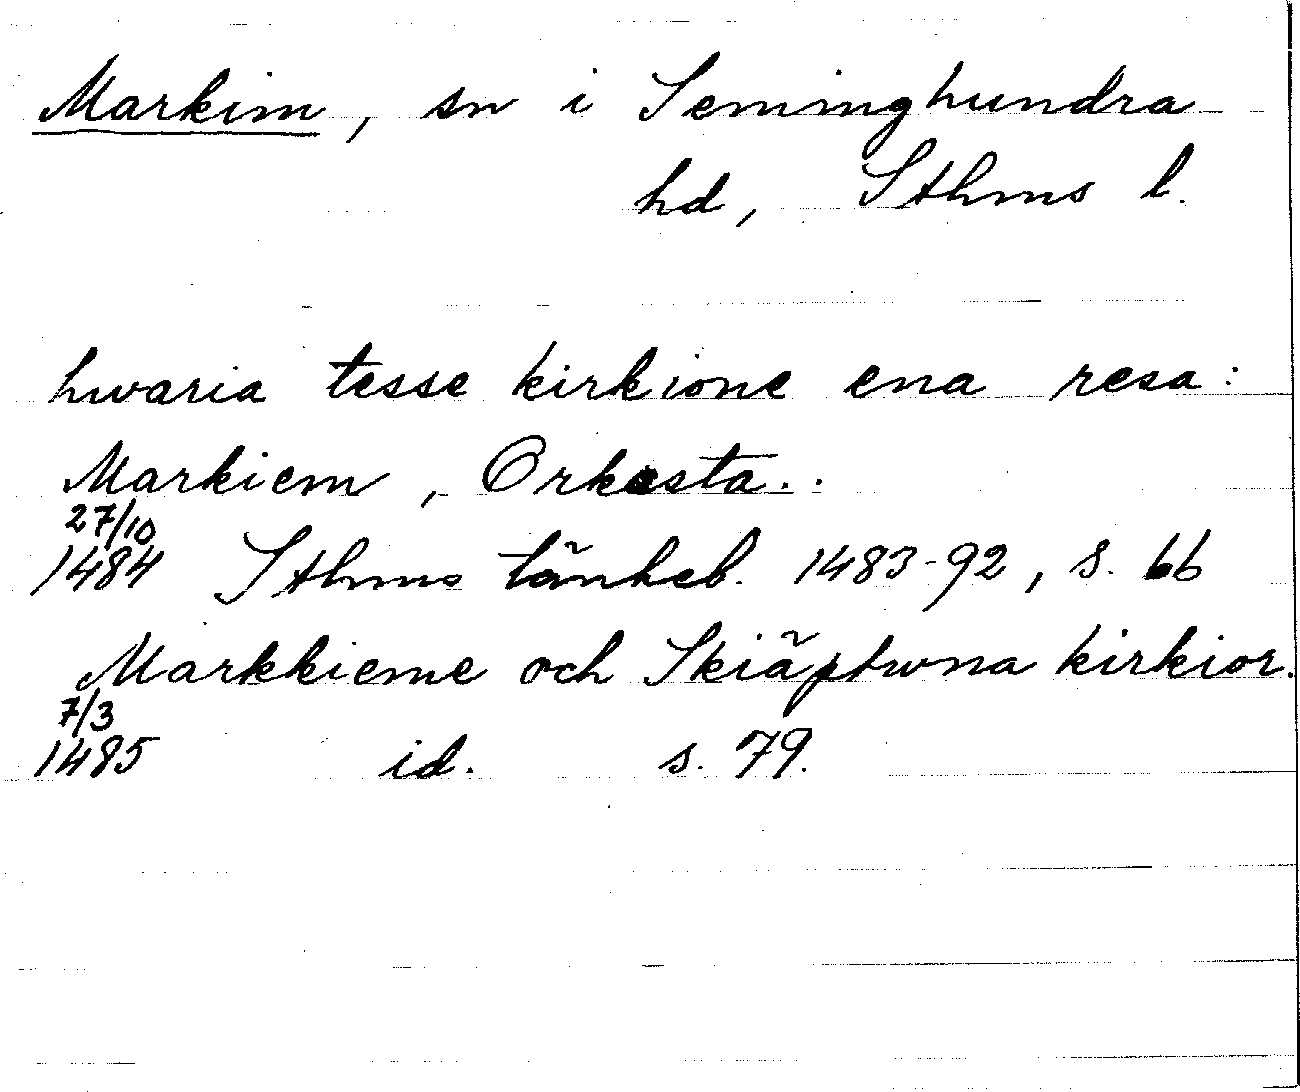 Markim, sn i Seminghundra
hd, Sthms l.
hvaria tesse kirkione ena resa:
Markiem, Orkesta..
27/10
1484 Sthms tänkeb. 1483-92, s. 66
Markkieme och Skiäptwna kirkior.
7/3
1485 id. s. 79.